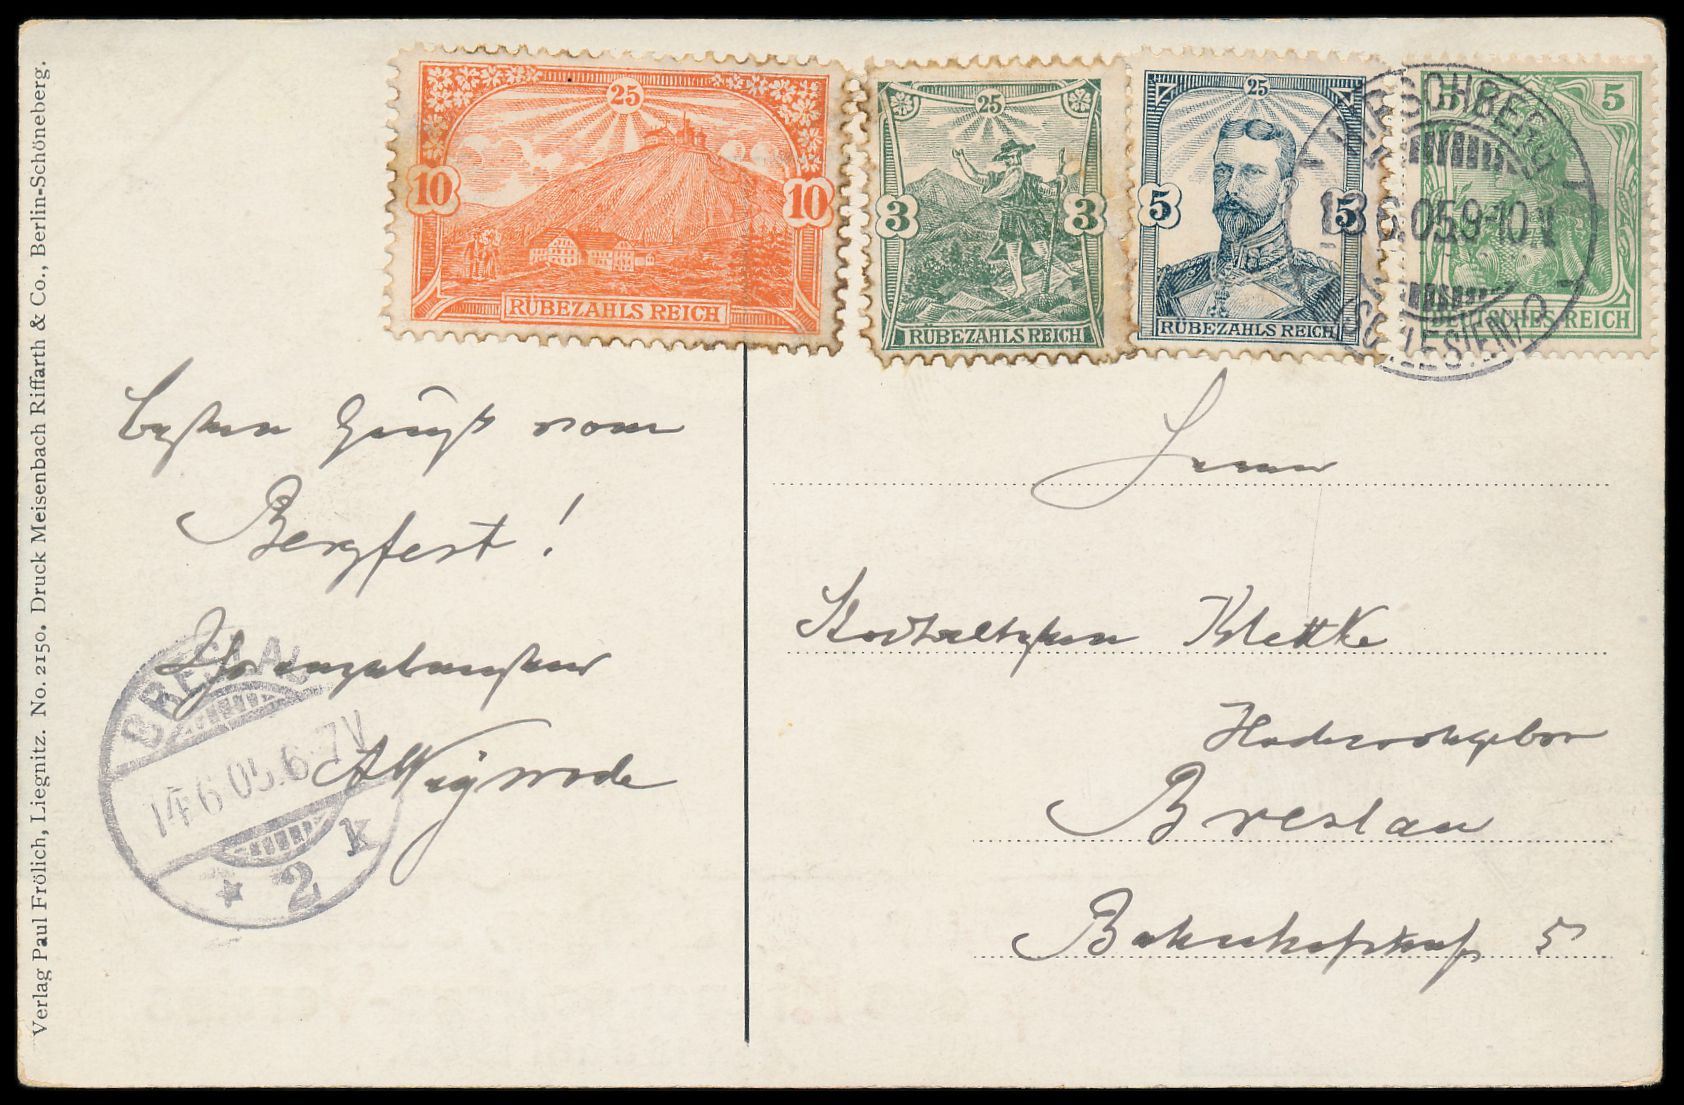 25
10 10
RÜBEZAHLS REICH
25
3 3
RÜBEZAHLS REICH
25
5 5
RÜBEZAHLS REICH
5
DEUTSCHES REICH
HIRSCHBERG
13.6.05.9-10N
(SCHLESIEN)
Besten Gruß vom
Bergfest!
Herrn
Klettke
Hochwohlgebor
Breslau
Bahnhofstraße 5
BRESLAU
14.6.05.6-7V
* 2 k
Verlag Paul Frölich, Liegnitz. No. 2150. Druck Meisenbach Riffarth & Co., Berlin-Schöneberg.